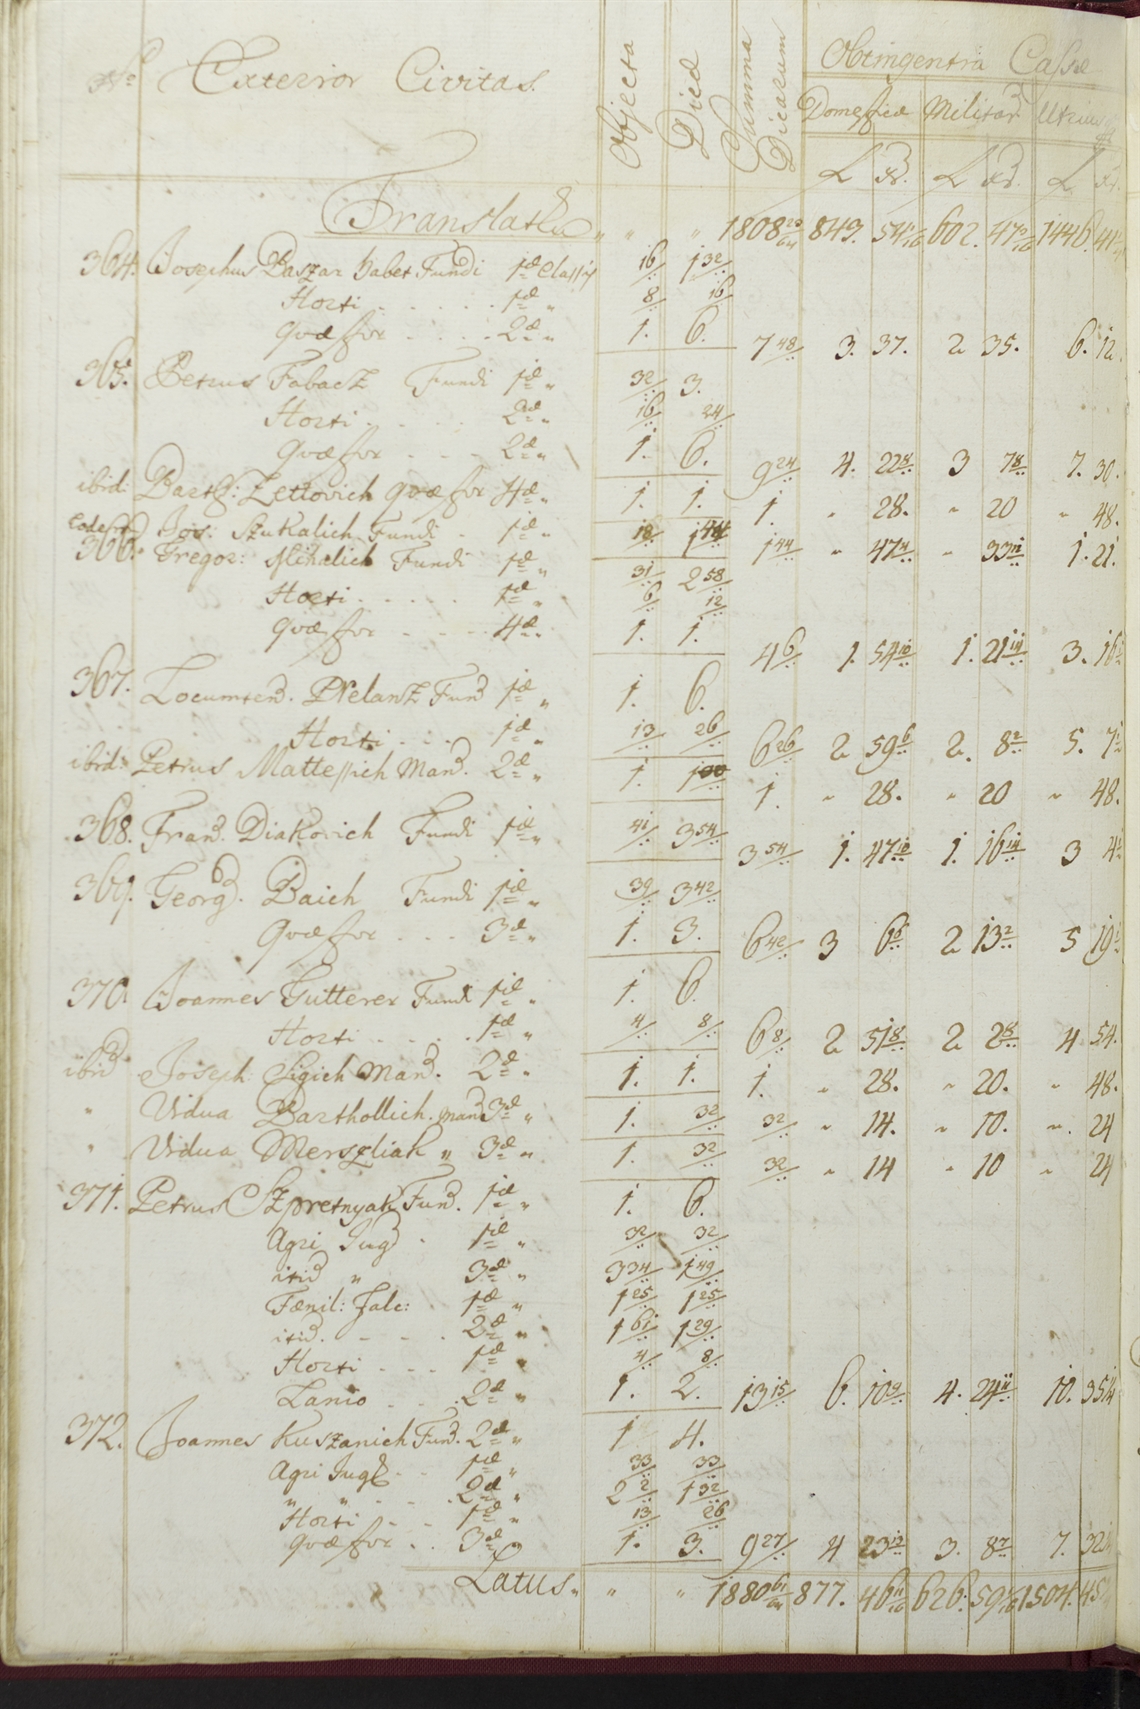 No Exterior Civitas. Objecta Dicæ Summa Dicarum Obtingentia Cassæ
Domesticæ Militar. Utrius
f xr. f xr. f xr.
Translatum " " " 1808 29/64 843. 54 602. 47 1446. 41
364. Josephus Baszar habet Fundi 1æ Classis 16 1 32
Horti . . . . . 1æ " 8 16
Quæstor . . . . 2æ " 1. 6. 7 48 3. 37. 2 35. 6. 12.
365. Petrus Fabacz Fundi 1æ " 32 3.
Horti . . . . 2æ " 16 24
Quæstor . . . 2æ " 1. 6. 9 24 4. 22 4 3 7 8 7. 30.
ibid: Barth: Zettovich Quæstor 4æ " 1. 1. 1. " 28. " 20 " 48.
Eodem Jos: Szukalich Fundi . 1æ " 18 1 44 1 44 " 47 4 " 33 12 1. 21.
366. Gregor: Mihalich Fundi 1æ " 31 2 58
Horti . . . . . 1æ " 6 12
Quæstor . . . 4æ " 1. 1. 4 6 1. 54 10 1. 21 14 3. 16
367. Locumten. Prelanz Fund 1æ " 1. 6.
Horti . . . 1æ " 13 26 6 26 2 59 6 2. 8 2 5. 7
ibid: Petrus Mattessich Mand. 2æ " 1. 1 00 1. " 28. " 20 " 48.
368. Fran. Diakovich Fundi 1æ " 41 3 54 3 54 1. 47 10 1. 16 14 3 4
369. Georg. Baich Fundi 1æ " 39 3 42
Quæstor . . . 3æ " 1. 3. 6 42 3 6 6 2 13 2 5 19
370. Joannes Gutterer Fundi 1æ " 1. 6.
Horti . . . . 1æ " 4 8 6 8 2 51 8 2 2 8 4 54.
ibid Joseph Sigich Mand. 2æ " 1. 1. 1. " 28. " 20. " 48.
" Vidua Barthollich. Mand 3æ " 1. 32 32 " 14. " 10. " 24
" Vidua Merszliak " 3æ " 1. 32 32 " 14 " 10 " 24
371. Petrus Szpretnyak Fund. 1æ " 1. 6.
Agri Jug . 1æ " 32 32
itid " 3æ " 3 34 1 49
Fænil: Falc: . 1æ " 1 25 1 25
itid. . . . . 2æ " 1 61 1 29
Horti . . . 1æ " 4 8
Lanio . . . 2æ " 1. 2. 13 15 6. 10 4 4. 24 11 10. 35
372. Joannes Kuszanich Fund. 2æ " 1 4.
Agri Jug . . 1æ " 33 33
" " . . . 2æ " 2 2 1 32
Horti . . 1æ " 13 26
Quæstor . . 3æ " 1. 3. 9 27 4 23 12 3. 8 7 7. 32
Latus " " " 1880 61/64 877. 46 11/16 626. 59 1504. 45